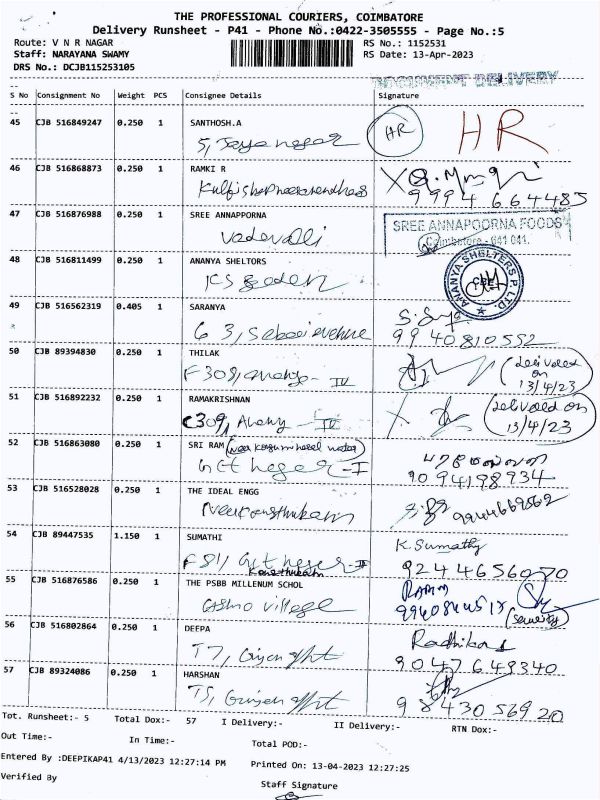 THE PROFESSIONAL COURIERS, COIMBATORE
Delivery Runsheet - P41 - Phone No.:0422-3505555 - Page No.:5
Route: V N R NAGAR RS No.: 1152531
Staff: NARAYANA SWAMY RS Date: 13-Apr-2023
DRS No.: DCJB115253105
DOCUMENT DELIVERY
S No Consignment No Weight PCS Consignee Details Signature
45 CJB 516849247 0.250 1 SANTHOSH.A HR HR
5, Jaya nagar
46 CJB 516868873 0.250 1 RAMKI R
9994664485
47 CJB 516876988 0.250 1 SREE ANNAPPORNA SREE ANNAPOORNA FOODS
Vadavalli Coimbatore - 641 041.
48 CJB 516811499 0.250 1 ANANYA SHELTORS ANANYA SHELTERS P. LTD CBE
KS
49 CJB 516562319 0.405 1 SARANYA
63, 9940810552
50 CJB 89394830 0.250 1 THILAK
F309, - IV delivered on 13/4/23
51 CJB 516892232 0.250 1 RAMAKRISHNAN
C309, - IV delivered on 13/4/23
52 CJB 516863080 0.250 1 SRI RAM
GCT nagar - I 9094198934
53 CJB 516528028 0.250 1 THE IDEAL ENGG
9944669562
54 CJB 89447535 1.150 1 SUMATHI K. Sumathy
F811, GCT nagar - II 9244656070
55 CJB 516876586 0.250 1 THE PSBB MILLENUM SCHOL
village (security)
56 CJB 516802864 0.250 1 DEEPA Radhika
T7, 9047649340
57 CJB 89324086 0.250 1 HARSHAN
T5, 9843056920
Tot. Runsheet:- 5 Total Dox:- 57 I Delivery:- II Delivery:- RTN Dox:-
Out Time:- In Time:- Total POD:-
Entered By :DEEPIKAP41 4/13/2023 12:27:14 PM Printed On: 13-04-2023 12:27:25
Verified By
Staff Signature